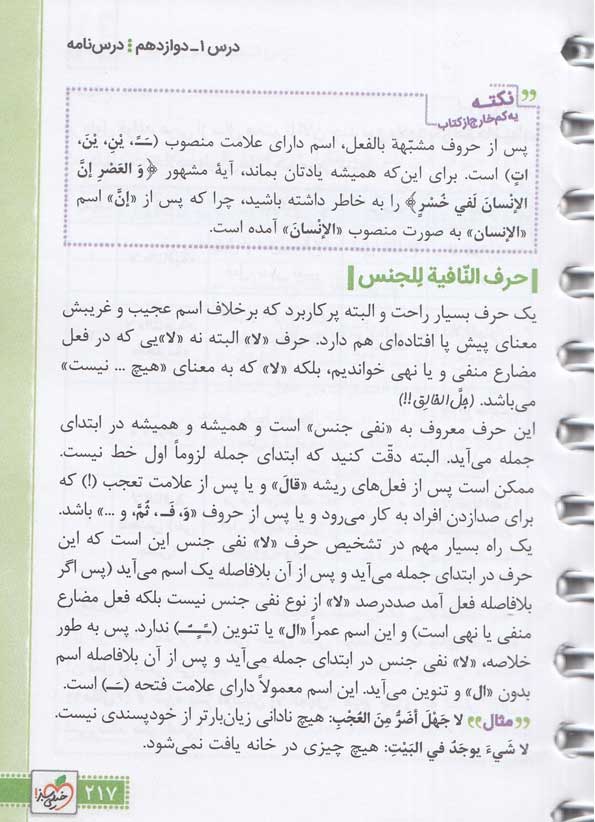 درس ۱ـ دوازدهم ⁞ درس‌نامه
نکتــه
یه‌کم خارج از کتاب
پس از حروف مشبّهة بالفعل، اسم دارای علامت منصوب (ـَـً، یْنِ، یْنَ،
اتِ) است. برای این‌که همیشه یادتان بماند، آیهٔ مشهور ﴿وَ العَصْرِ إنَّ
الإنْسانَ لَفي خُسْرٍ﴾ را به خاطر داشته باشید، چرا که پس از «إنَّ» اسم
«الإنسان» به صورت منصوب «الإنْسانَ» آمده است.
حرف النّافیة لِلجنس
یک حرف بسیار راحت و البته پرکاربرد که برخلاف اسم عجیب و غریبش
معنای پیش پا افتاده‌ای هم دارد. حرف «لا» البته نه «لا»یی که در فعل
مضارع منفی و یا نهی خواندیم، بلکه «لا» که به معنای «هیچ ... نیست»
می‌باشد. (جلّ الخالق!!)
این حرف معروف به «نفی جنس» است و همیشه و همیشه در ابتدای
جمله می‌آید. البته دقّت کنید که ابتدای جمله لزوماً اول خط نیست.
ممکن است پس از فعل‌های ریشه «قالَ» و یا پس از علامت تعجب (!) که
برای صدازدن افراد به کار می‌رود و یا پس از حروف «وَ، فَـ، ثُمَّ، و ...» باشد.
یک راه بسیار مهم در تشخیص حرف «لا» نفی جنس این است که این
حرف در ابتدای جمله می‌آید و پس از آن بلافاصله یک اسم می‌آید (پس اگر
بلافاصله فعل آمد صددرصد «لا» از نوع نفی جنس نیست بلکه فعل مضارع
منفی یا نهی است) و این اسم عمراً «ال» یا تنوین (ـًـٍـٌ) ندارد. پس به طور
خلاصه، «لا» نفی جنس در ابتدای جمله می‌آید و پس از آن بلافاصله اسم
بدون «ال» و تنوین می‌آید. این اسم معمولاً دارای علامت فتحه (ـَـ) است.
«مثال» لا جَهْلَ أضَرُّ مِنَ العُجْبِ: هیچ نادانی زیان‌بارتر از خودپسندی نیست.
لا شَيءَ یوجَدُ في البَیْتِ: هیچ چیزی در خانه یافت نمی‌شود.
خیلی سبز
۲۱۷